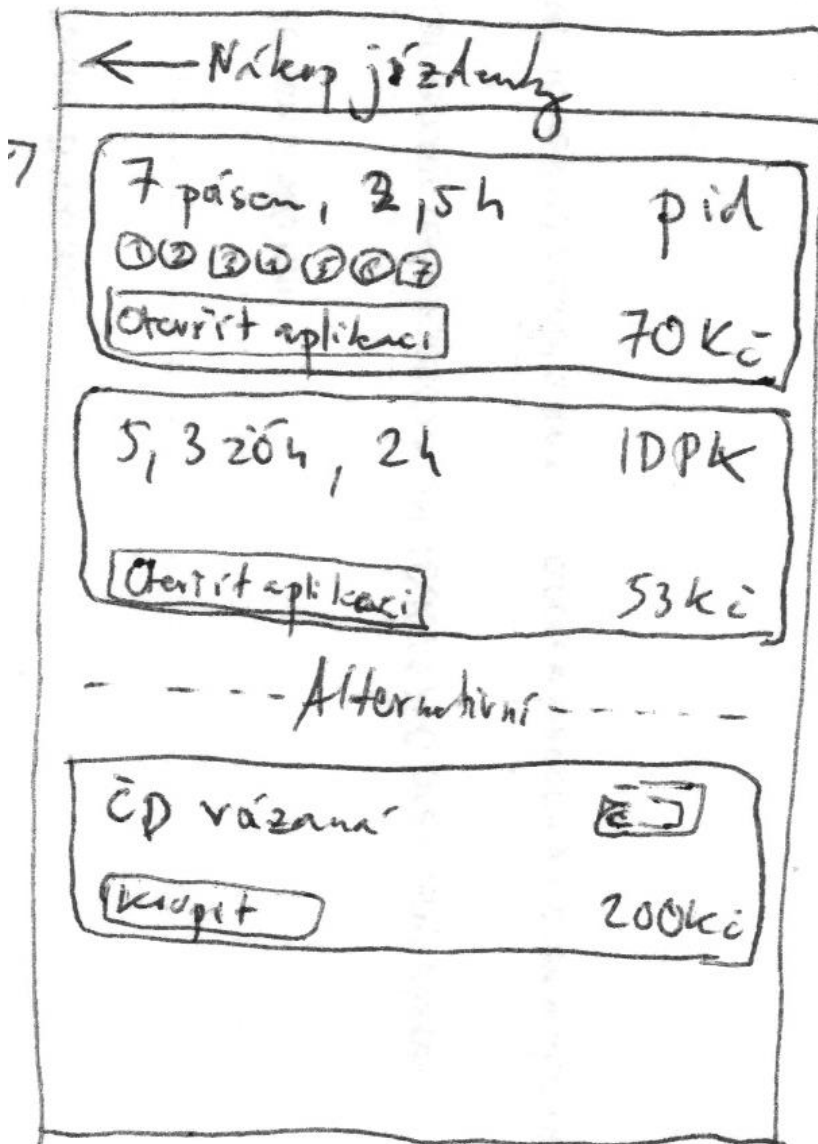 ← Nákup jízdenky
7 pásem, 2,5h pid
① ② ③ ④ ⑤ ⑥ ⑦
Otevřít aplikaci 70 Kč
5, 3 zón, 2h IDPK
Otevřít aplikaci 53 Kč
- - - - Alternativní - - - - -
ČD vázaná
Koupit 200 Kč